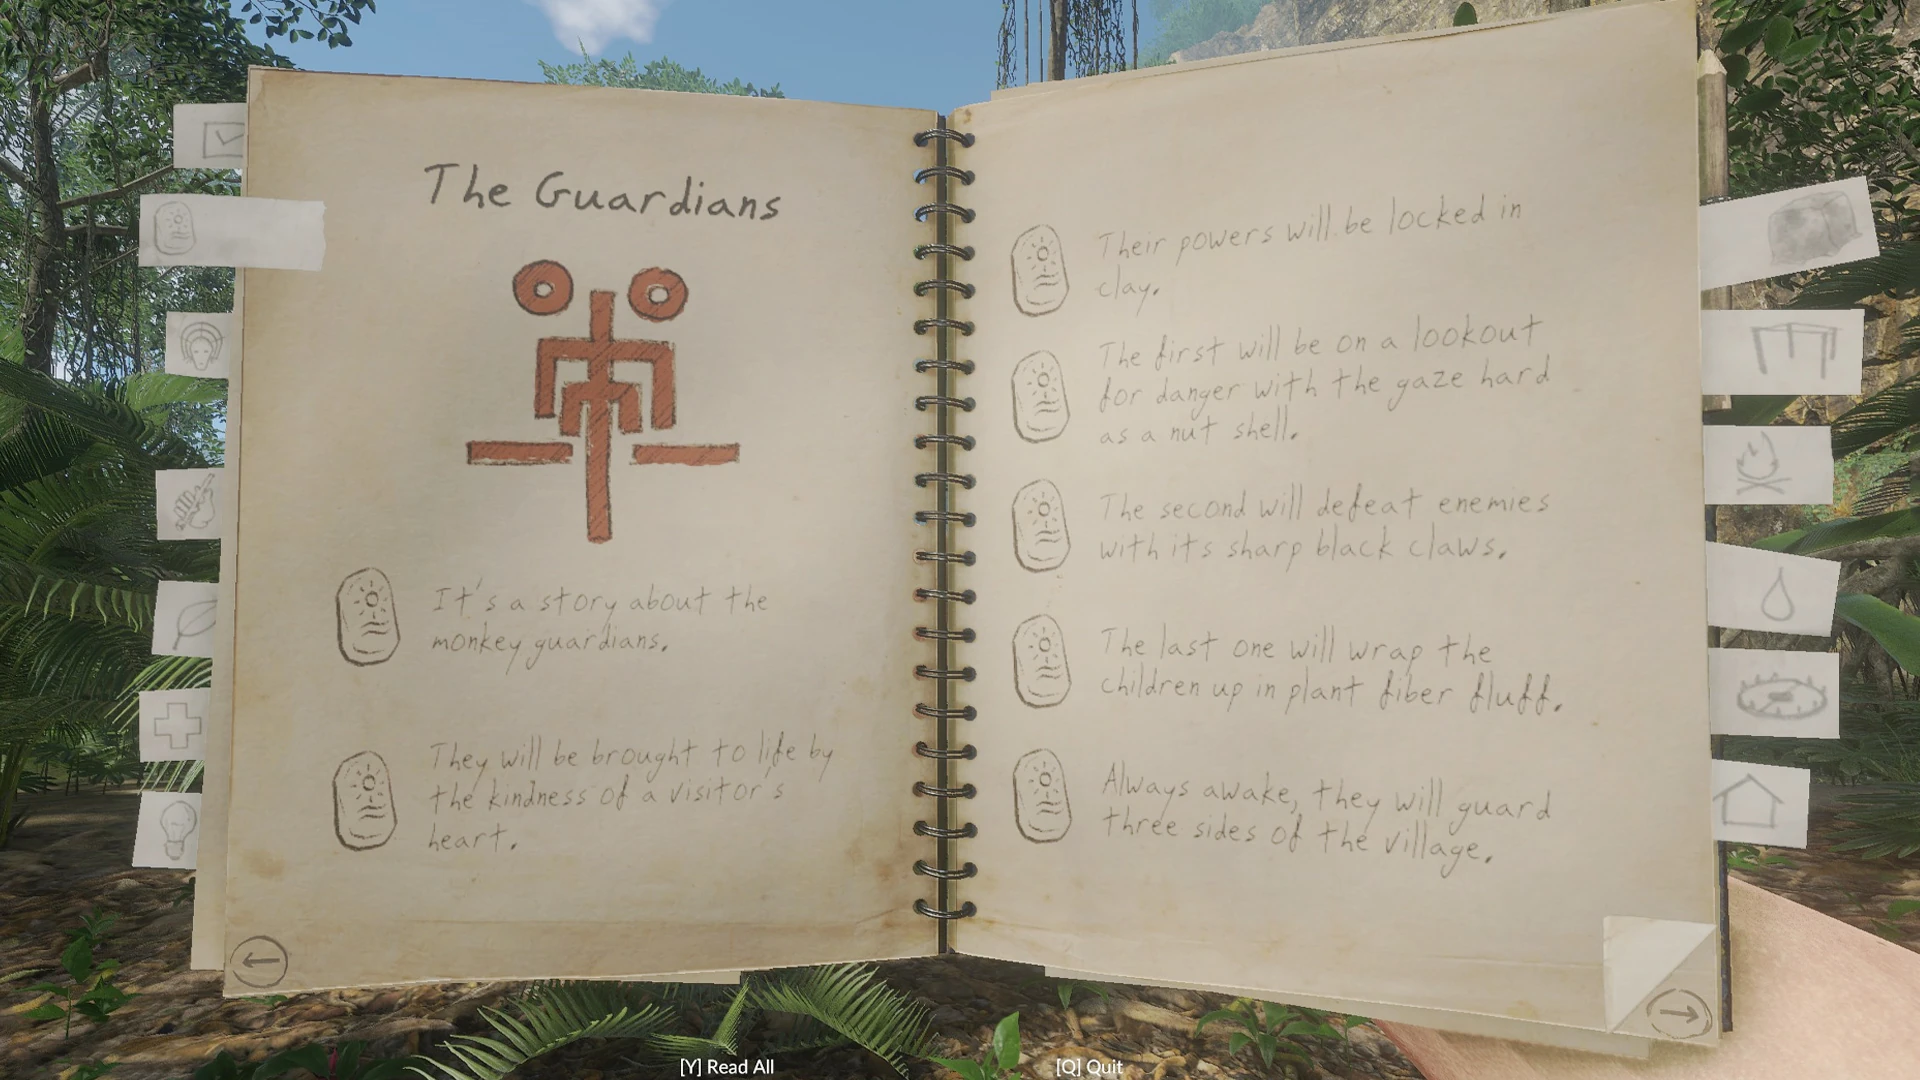 The Guardians
It's a story about the
monkey guardians.
They will be brought to life by
the kindness of a visitor's
heart.
Their powers will be locked in
clay.
The first will be on a lookout
for danger with the gaze hard
as a nut shell.
The second will defeat enemies
with its sharp black claws.
The last one will wrap the
children up in plant fiber fluff.
Always awake, they will guard
three sides of the village.
[Y] Read All
[Q] Quit